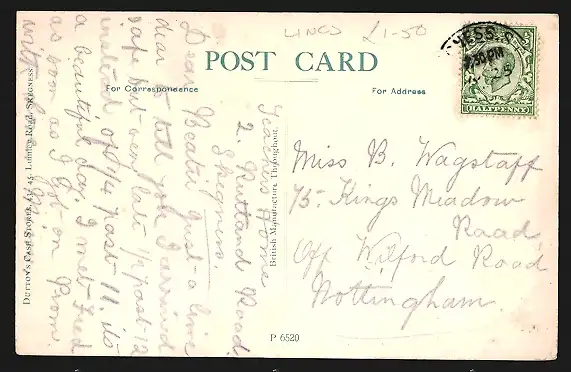 LINCS £1-50
POST CARD
For Correspondence
For Address
2.30 PM
25
HALFPENNY
Teachers Home
2. Rutland Road,
Skegness.
Dear Beatie Just a line
dear to tell you I arrived
safe but very late 1/2 past 12
instead of 1/4 past 11. its
a beautiful day. I met Fred
as soon as I got on Prom.
with
Miss B. Wagstaff
75 Kings Meadow
Road
Off Wilford Road
Nottingham.
British Manufacture Throughout.
DUTTON'S CASH STORES, 45, Lumley Road, SKEGNESS
P 6520